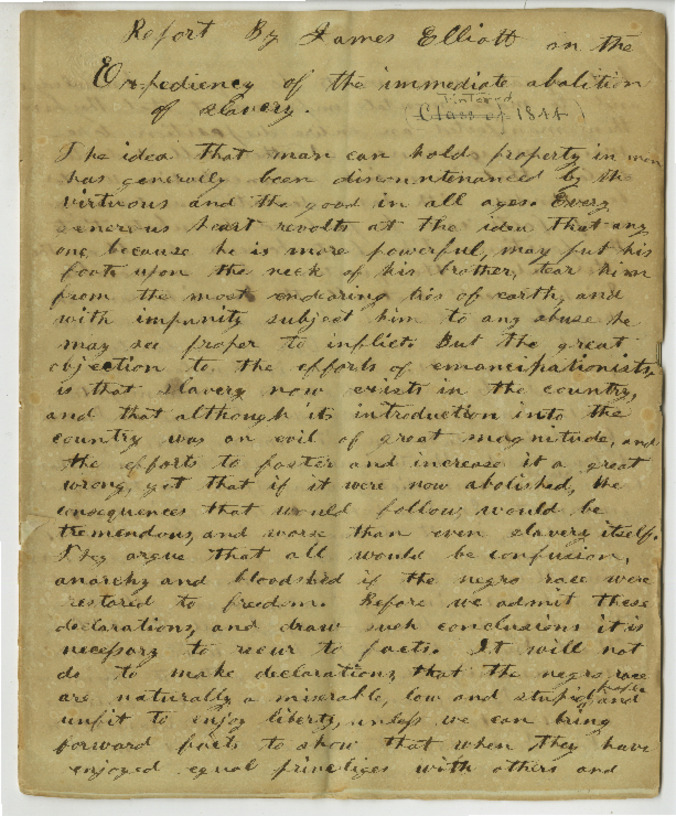 Report By James Elliott on the
Expediency of the immediate abolition
of slavery.
entered
(Class of 1844)
The idea that man can hold property in man
has generally been discountenanced by the
virtuous and the good in all ages. Every
generous heart revolts at the idea that any
one, because he is more powerful, may put his
foot upon the neck of his brother, tear him
from the most endearing ties of earth, and
with impunity subject him to any abuse he
may see proper to inflict. But the great
objection to the efforts of emancipationists,
is that slavery now exists in the country,
and that although its introduction into the
country was an evil of great magnitude, and
the efforts to foster and increase it a great
wrong, yet that if it were now abolished, the
consequences that would follow would be
tremendous, and worse than even slavery itself.
They argue that all would be confusion,
anarchy and bloodshed if the negro race were
restored to freedom. Before we admit these
declarations, and draw such conclusions it is
necessary to recur to facts. It will not
do to make declarations, that the negro race
are naturally a miserable, low and stupid people and
unfit to enjoy liberty, unless we can bring
forward facts to show that when they have
enjoyed equal priveliges with others and